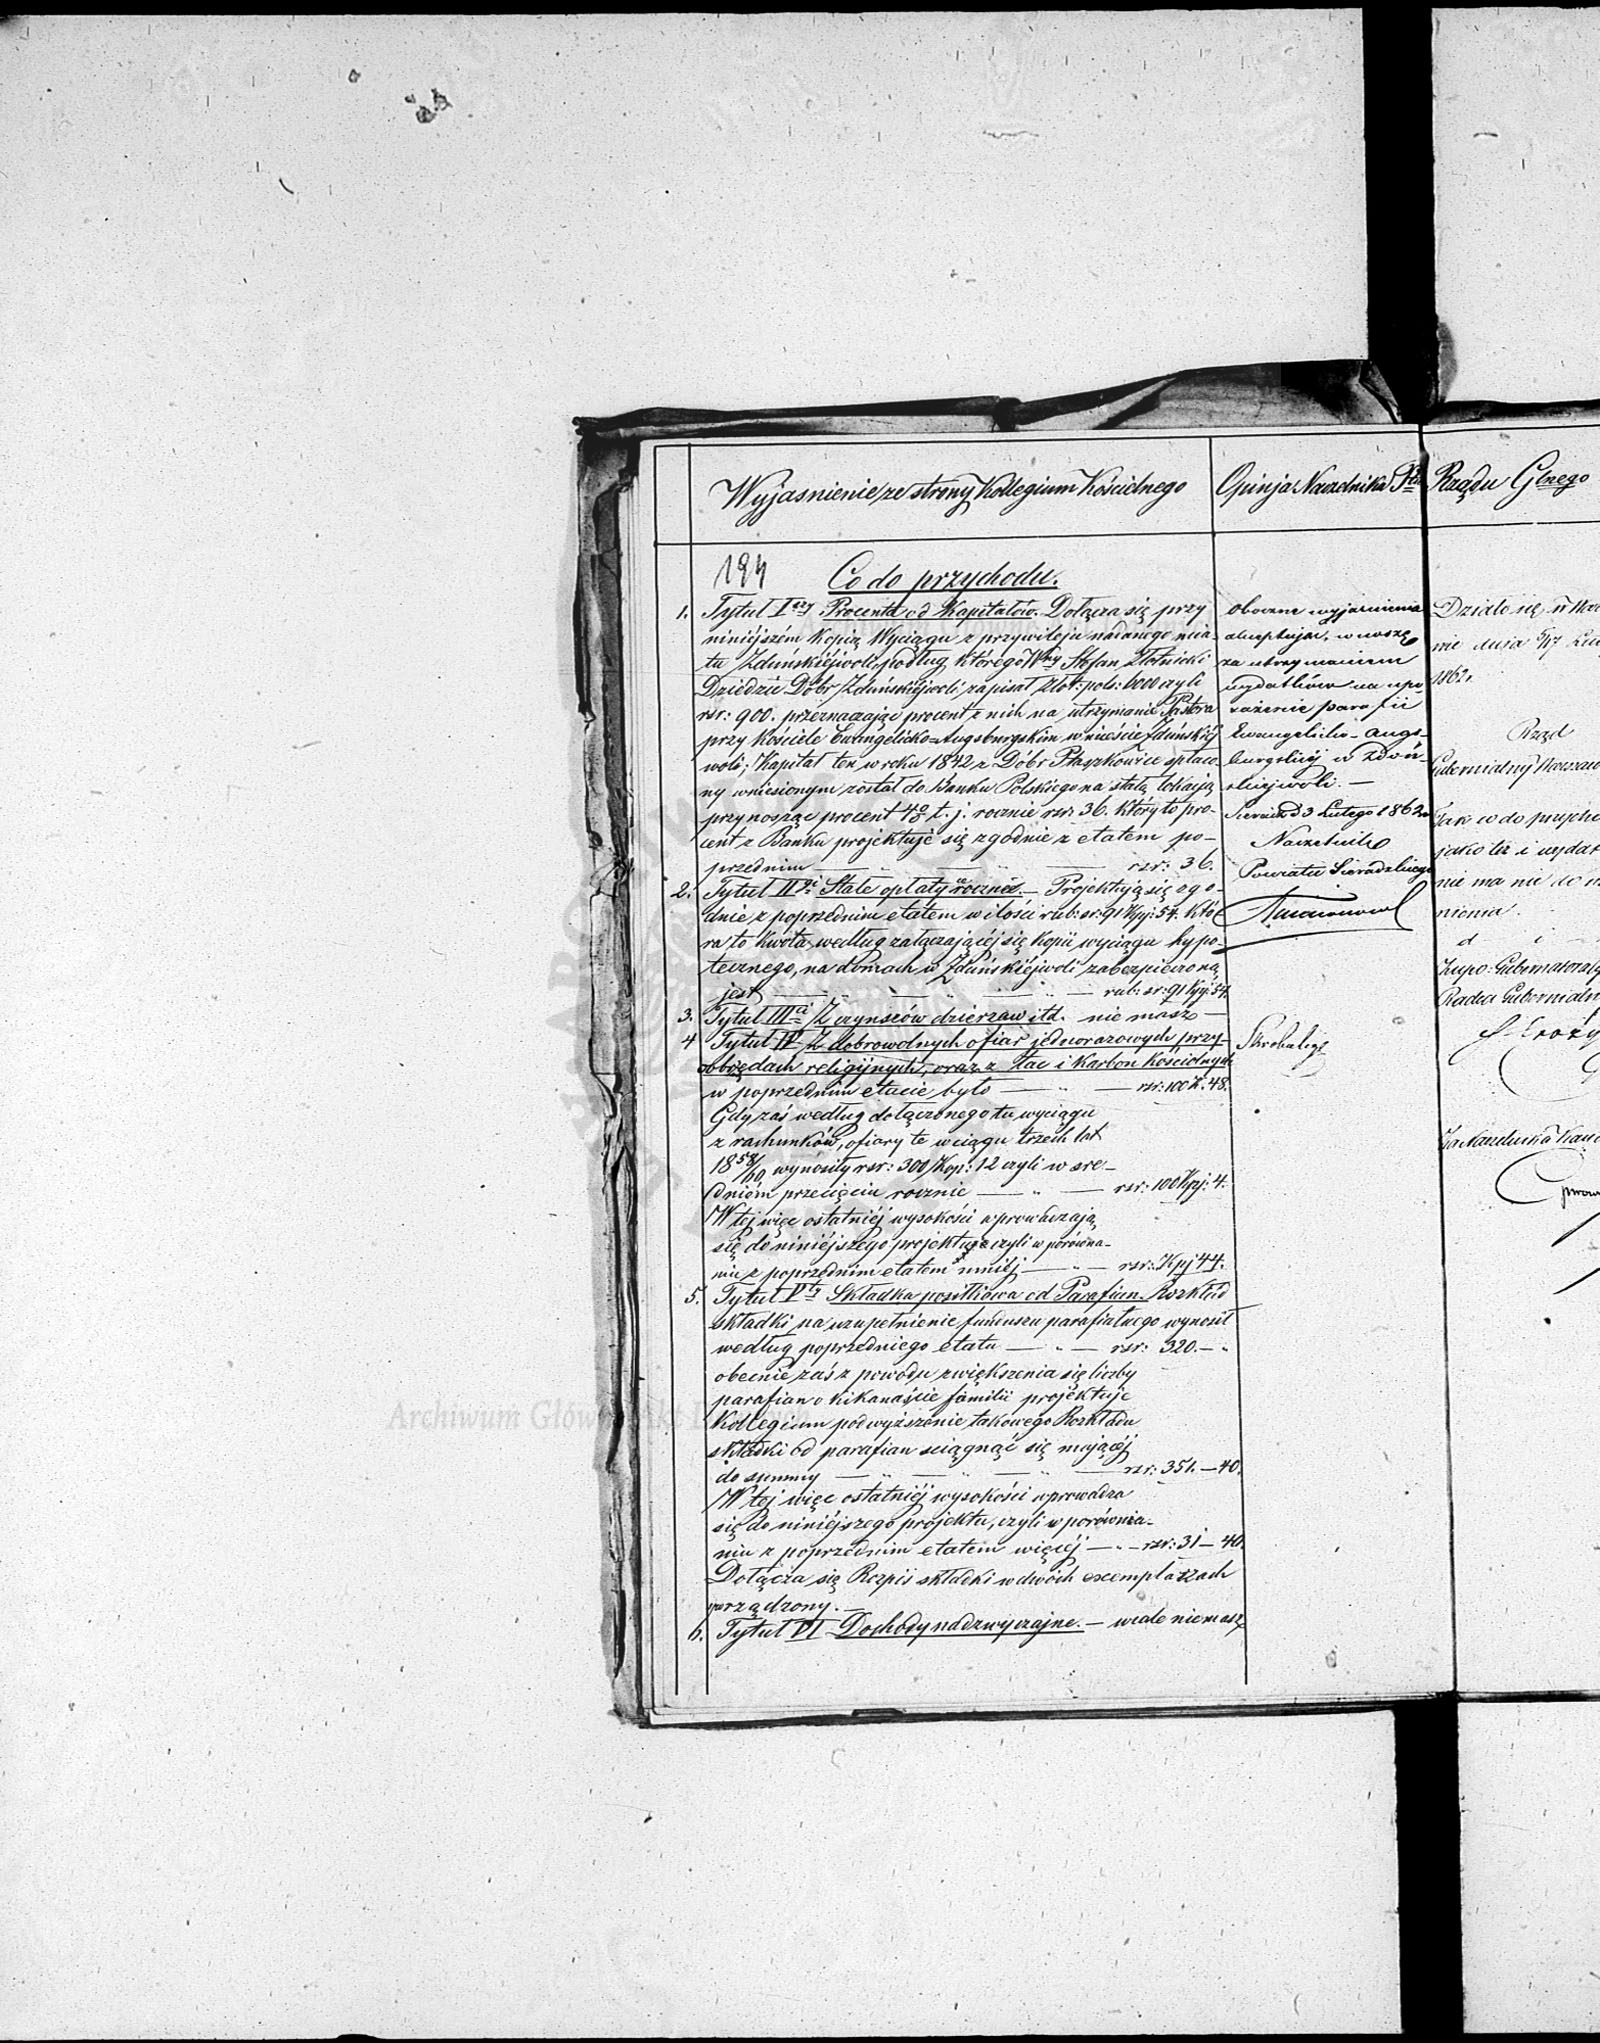 Wyjasnienie ze strony Kollegium Kościelnego
Opinja Naczelnika Ptu
Rządu Glnego
194
Co do przychodu.
1. Tytuł Iszy Procenta od Kapitałów. Dołącza się przy
niniejszém Kopią Wyciągu z przywileju nadanego mia-
stu Zduńskiéjwoli, podług którego Wny Stefan Złotnicki
Dziedzic Dóbr Zduńskiéjwoli zapisał złot: pols: 6000 czyli
rsr: 900. przeznaczając procent z nich na utrzymanie Pastora
przy Kościele Ewangelicko=Augsburgskim w mieście Zduńskiéj
woli; Kapitał ten w roku 1842 z Dóbr Ptaszkowice spłaco-
ny wniesionym został do Banku Polskiego na stałą lokacją
przynosząc procent 4% t. j. rocznie rsr: 36. który to pro-
cent z Banku projektuje się zgodnie z etatem po-
przednim — rsr: 36.
2. Tytuł IIgi Stałe opłaty roczne. — Projektują się zgo-
dnie z poprzednim etatem w ilości rub: sr: 91 Kpj: 54. Któ-
ra to Kwota według załączającéj się Kopii wyciągu hypo-
tecznego, na domach w Zduńskiéjwoli zabezpieczoną
jest — rub: sr: 91 Kpj: 54.
3. Tytuł IIIci Z czynszów dzierżaw itd. nie masz —
4 Tytuł IV Z dobrowolnych ofiar jednorazowych przy
obrzędach religijnych, oraz z Tac i Karbon Kościelnych
w poprzednim etacie było — rsr: 100 K. 48.
Gdy zaś według dołączonego tu wyciągu
z rachunków, ofiary te w ciągu trzech lat
1858/60 wynosiły rsr: 300 Kop: 12 czyli w śre-
dniém przecięciu rocznie — rsr: 100 Kpj: 4.
W tej więc ostatniéj wysokości wprowadzają
się do niniéjszego projektu, czyli w porówna-
niu z poprzednim etatem mniéj — rsr: Kpj 44.
5. Tytuł Vty Składka posiłkowa od Parafian. Rozkład
składki na uzupełnienie funduszu parafialnego wynosił
według poprzedniego etatu — rsr: 320. —
obecnie zaś z powodu zwiększenia się liczby
parafian o kikanaście familii projektuje
Kollegium podwyższenie takowego Rozkładu
składki od parafian ściągnąć się mającéj
do summy — rsr: 351. — 40.
W tej więc ostatniéj wysokości wprowadza
się do niniéjszego projektu, czyli w porówna-
niu z poprzednim etatem więcéj — rsr: 31 — 40.
Dołącza się Rozpis składki w dwóch exemplarzach
porządzony. —
6. Tytuł VI Dochody nadzwyczajne. — wcale niemasz
oboczne wyjaśnienia
akceptując, wnoszę
za utrzymaniem
wydatków na upo-
sażenie parafii
Ewangelicko-augs-
burgskiéj w Zduń-
skiejwoli. —
Sieradz d 3 Lutego 1862 r
Naczelnik
Powiatu Sieradzkiego
Działo się w War
nie dnia 5/17 Lut
1862 r.
Rząd
Gubernialny Warszaw
Tak co do przycho
jako też i wydat
nie ma nic do
nienia.
Zastęp: Gubernatora
Radca Gubernialn
Za Naczelnika Kanc
Archiwum Główne Akt Dawnych